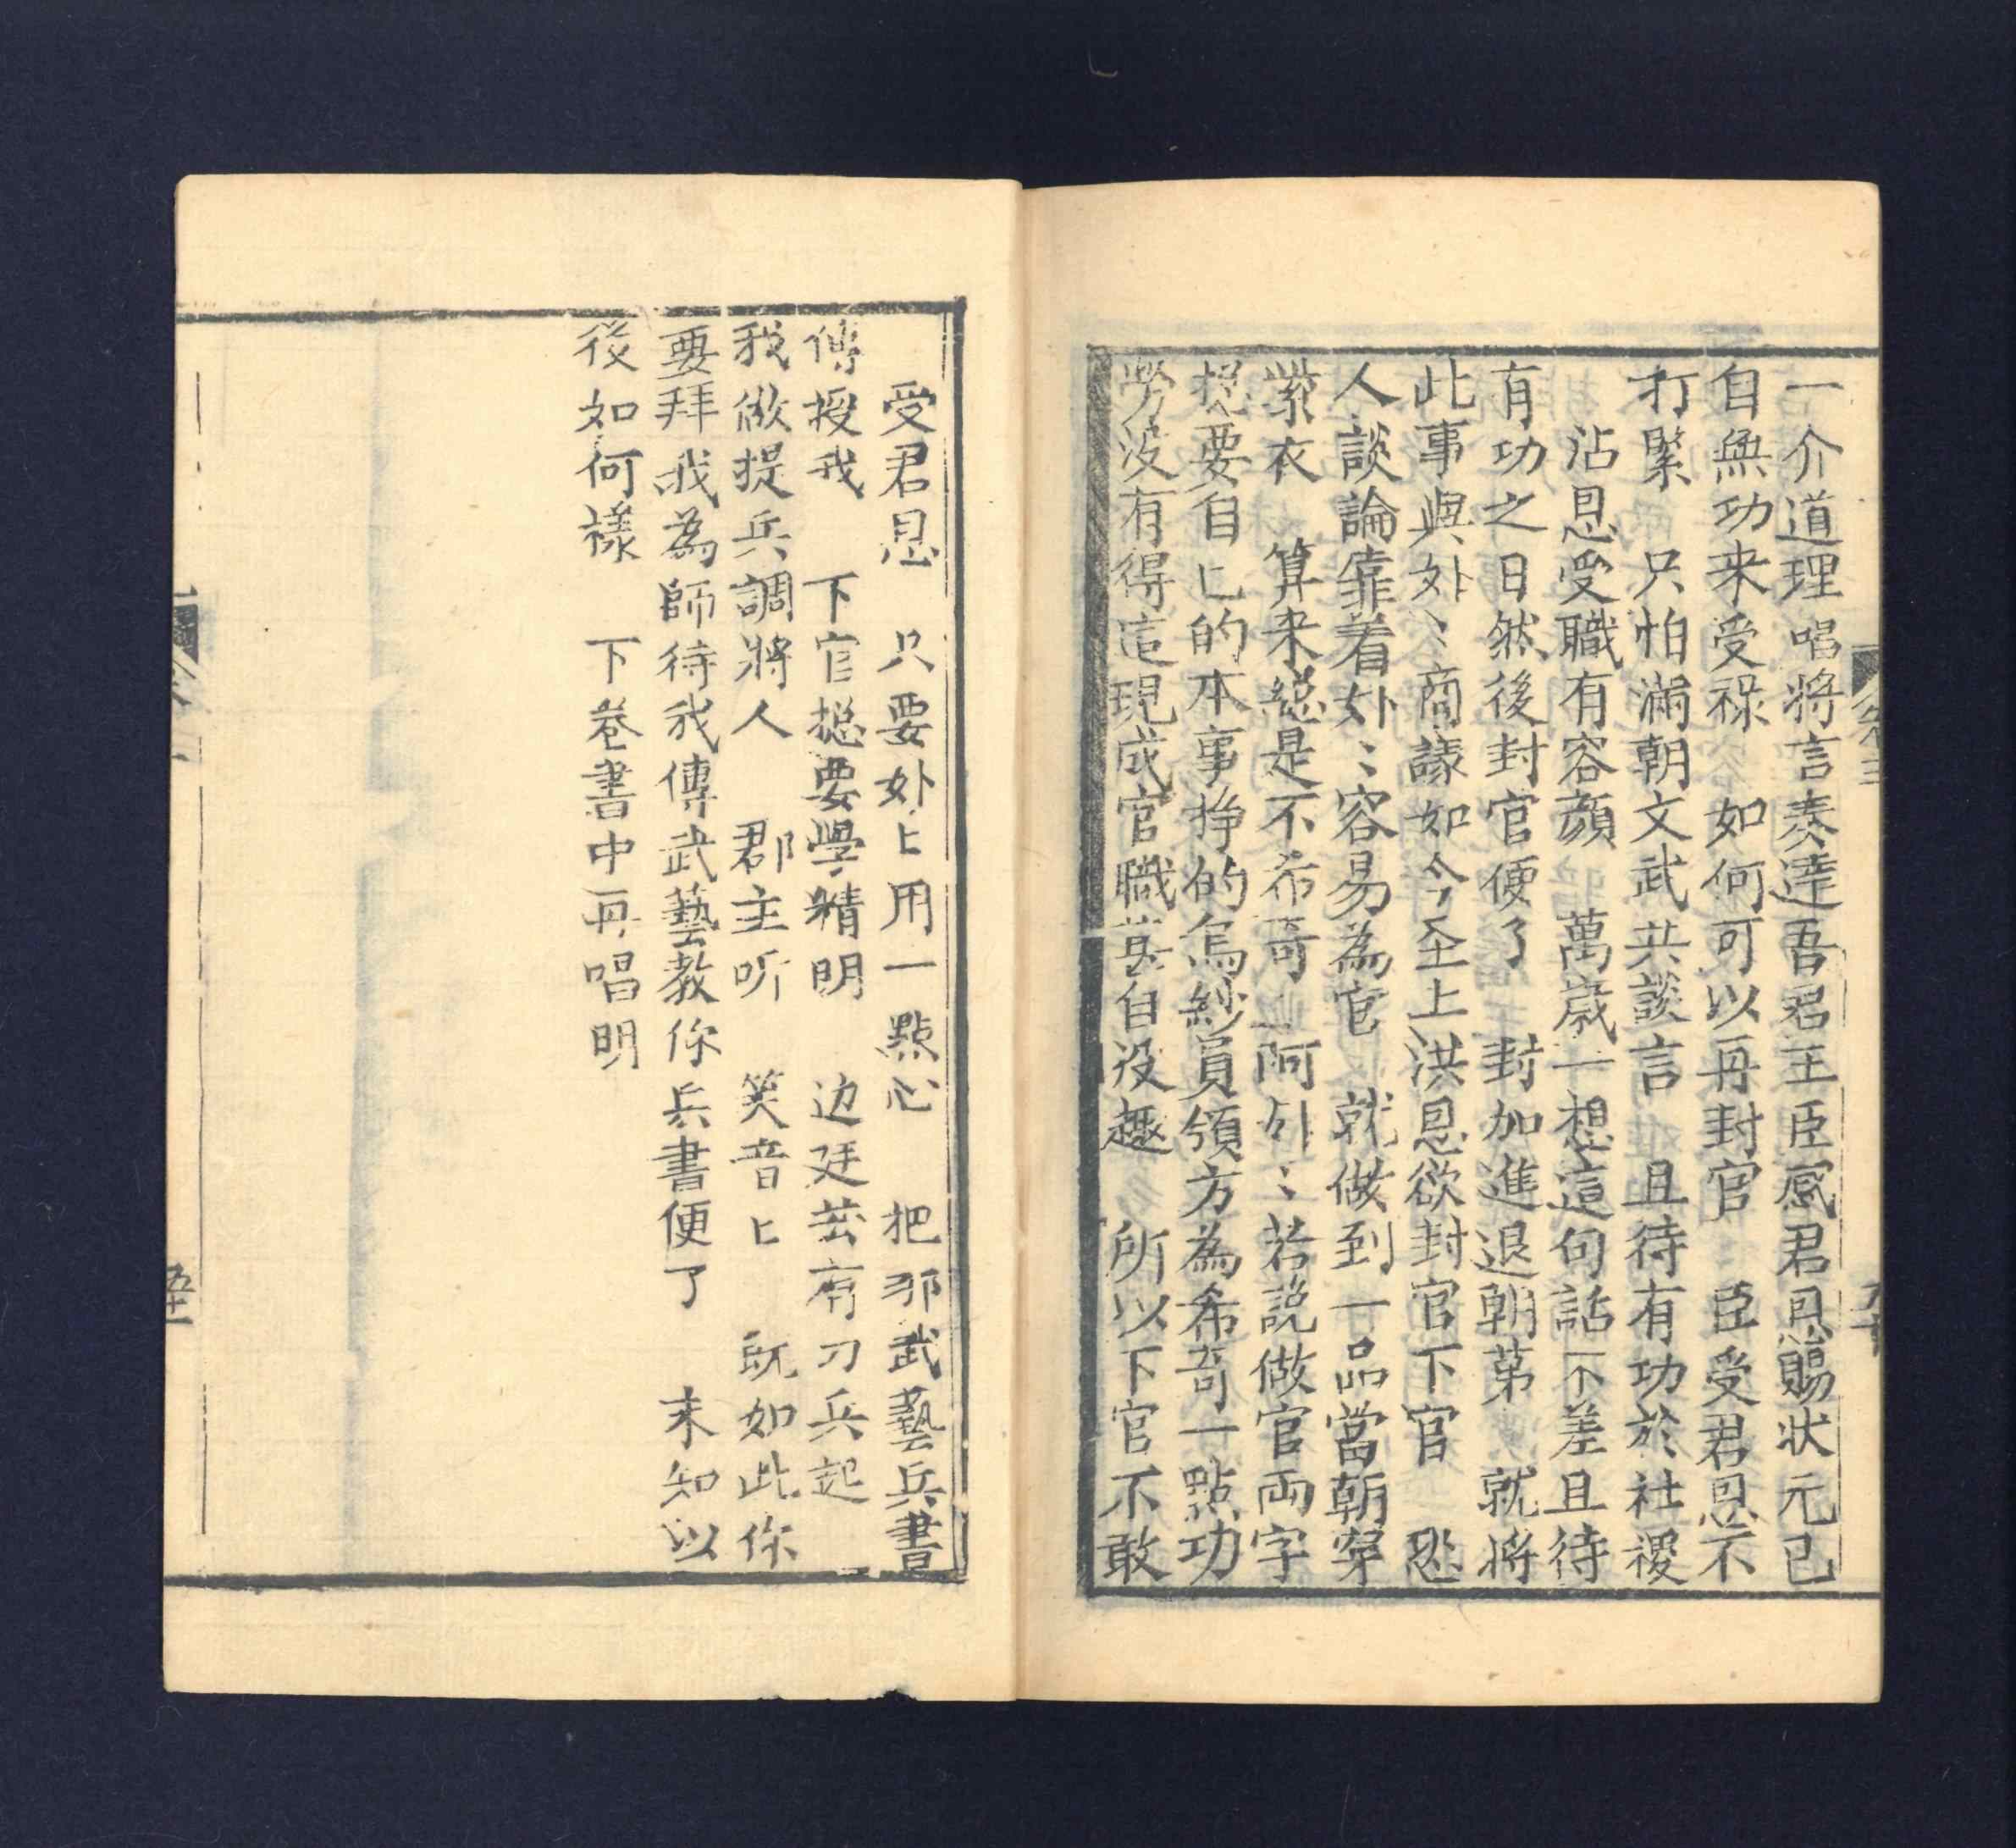 一介道理唱將言奏達吾君王臣感君恩賜状元已
自無功来受祿　如何可以再封官　臣受君恩不
打緊　只怕滿朝文武共談言　且待有功於社稷
沾恩受職有容顔　萬歳一想這句話不差且待
有功之日然後封官便了　封加進退朝第　就將
此事與外〻商議如今圣上洪恩欲封官下官　恐
人談論靠着外〻容易為官　就做到一品當朝穿
紫衣　算来總是不希奇　阿外〻若說做官両字
揔要自匕的本事挣的烏紗員領方為希奇一點功
勞没有得這現成官職甚自没趣　所以下官不敢
受君恩　只要外匕用一點心　把那武藝兵書
傳授我　下官揔要學精明　边廷若有刀兵起
我做提兵調將人　郡主听　笑音匕　既如此你
要拜我為師待我傳武藝教你兵書便了　未知以
後如何樣　下卷書中再唱明
卷三